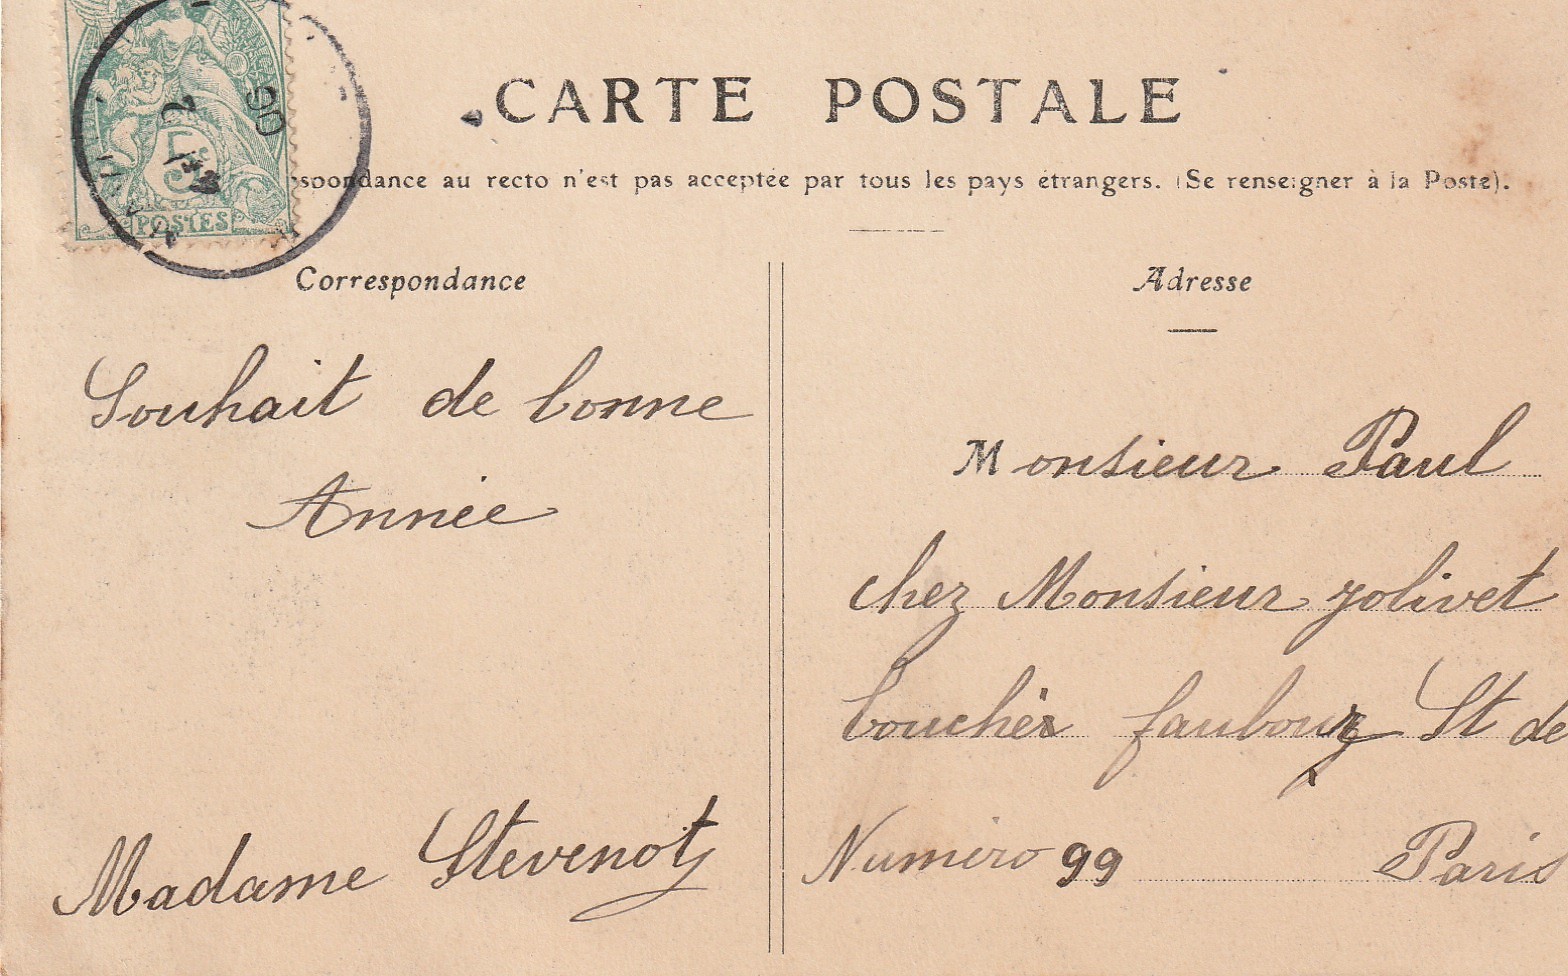 CARTE POSTALE
spondance au recto n'est pas acceptée par tous les pays étrangers. (Se renseigner à la Poste).
5c
POSTES
Correspondance
Adresse
Souhait de bonne
Année
Madame Stevenot
Monsieur Paul
chez Monsieur Jolivet
boucher faubourg St de
Numéro 99 Paris